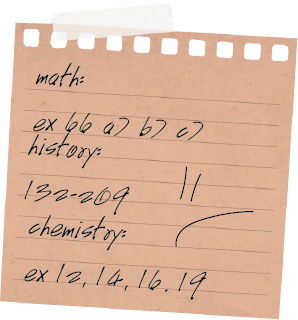 math:
ex 66 a) b) c)
history:
132-209
chemistry:
ex 12, 14, 16, 19